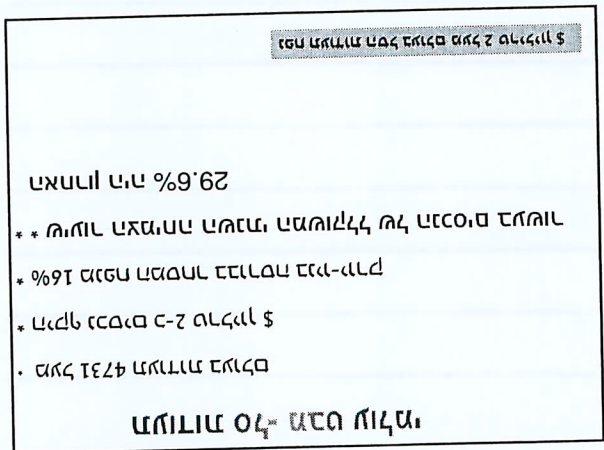 תעודות סל- מבט עולמי
• מעל 4731 תעודות בעולם
* היקף נכסים כ-2 טריליון $
* 16% מנפח המסחר בבורסה בניו-יורק
** שיעור הצמיחה השנתי המשוקלל של הנכסים בעשור
האחרון היה 29.6%
נפח תעודות הסל בעולם מעל 2 טריליון $